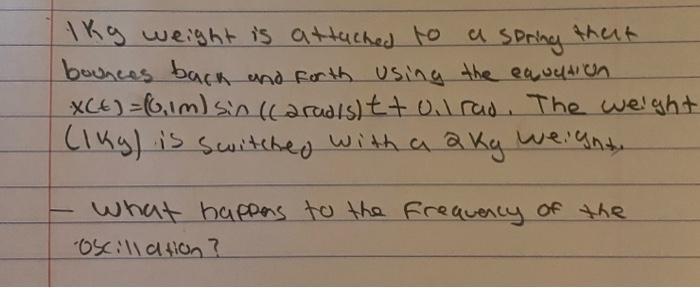 1Kg weight is attached to a spring that
bounces back and forth using the equation
x(t)=(0,1m) sin ((2rad/s)t + 0.1 rad. The weight
(1Kg) is switched with a 2Kg weight.
- What happens to the frequency of the
oscillation?